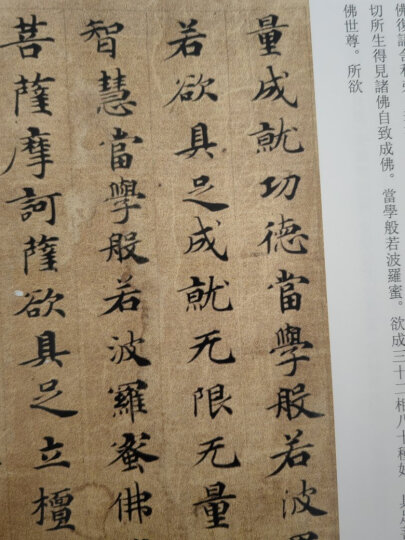 佛復語舍利弗
切所生得見諸佛自致成佛。當學般若波羅蜜。欲成三十二相八十種好。具足
佛世尊。所欲
量成就功德當學般若波羅
若欲具足成就无限无量
智慧當學般若波羅蜜佛
菩薩摩訶薩欲具足立檀